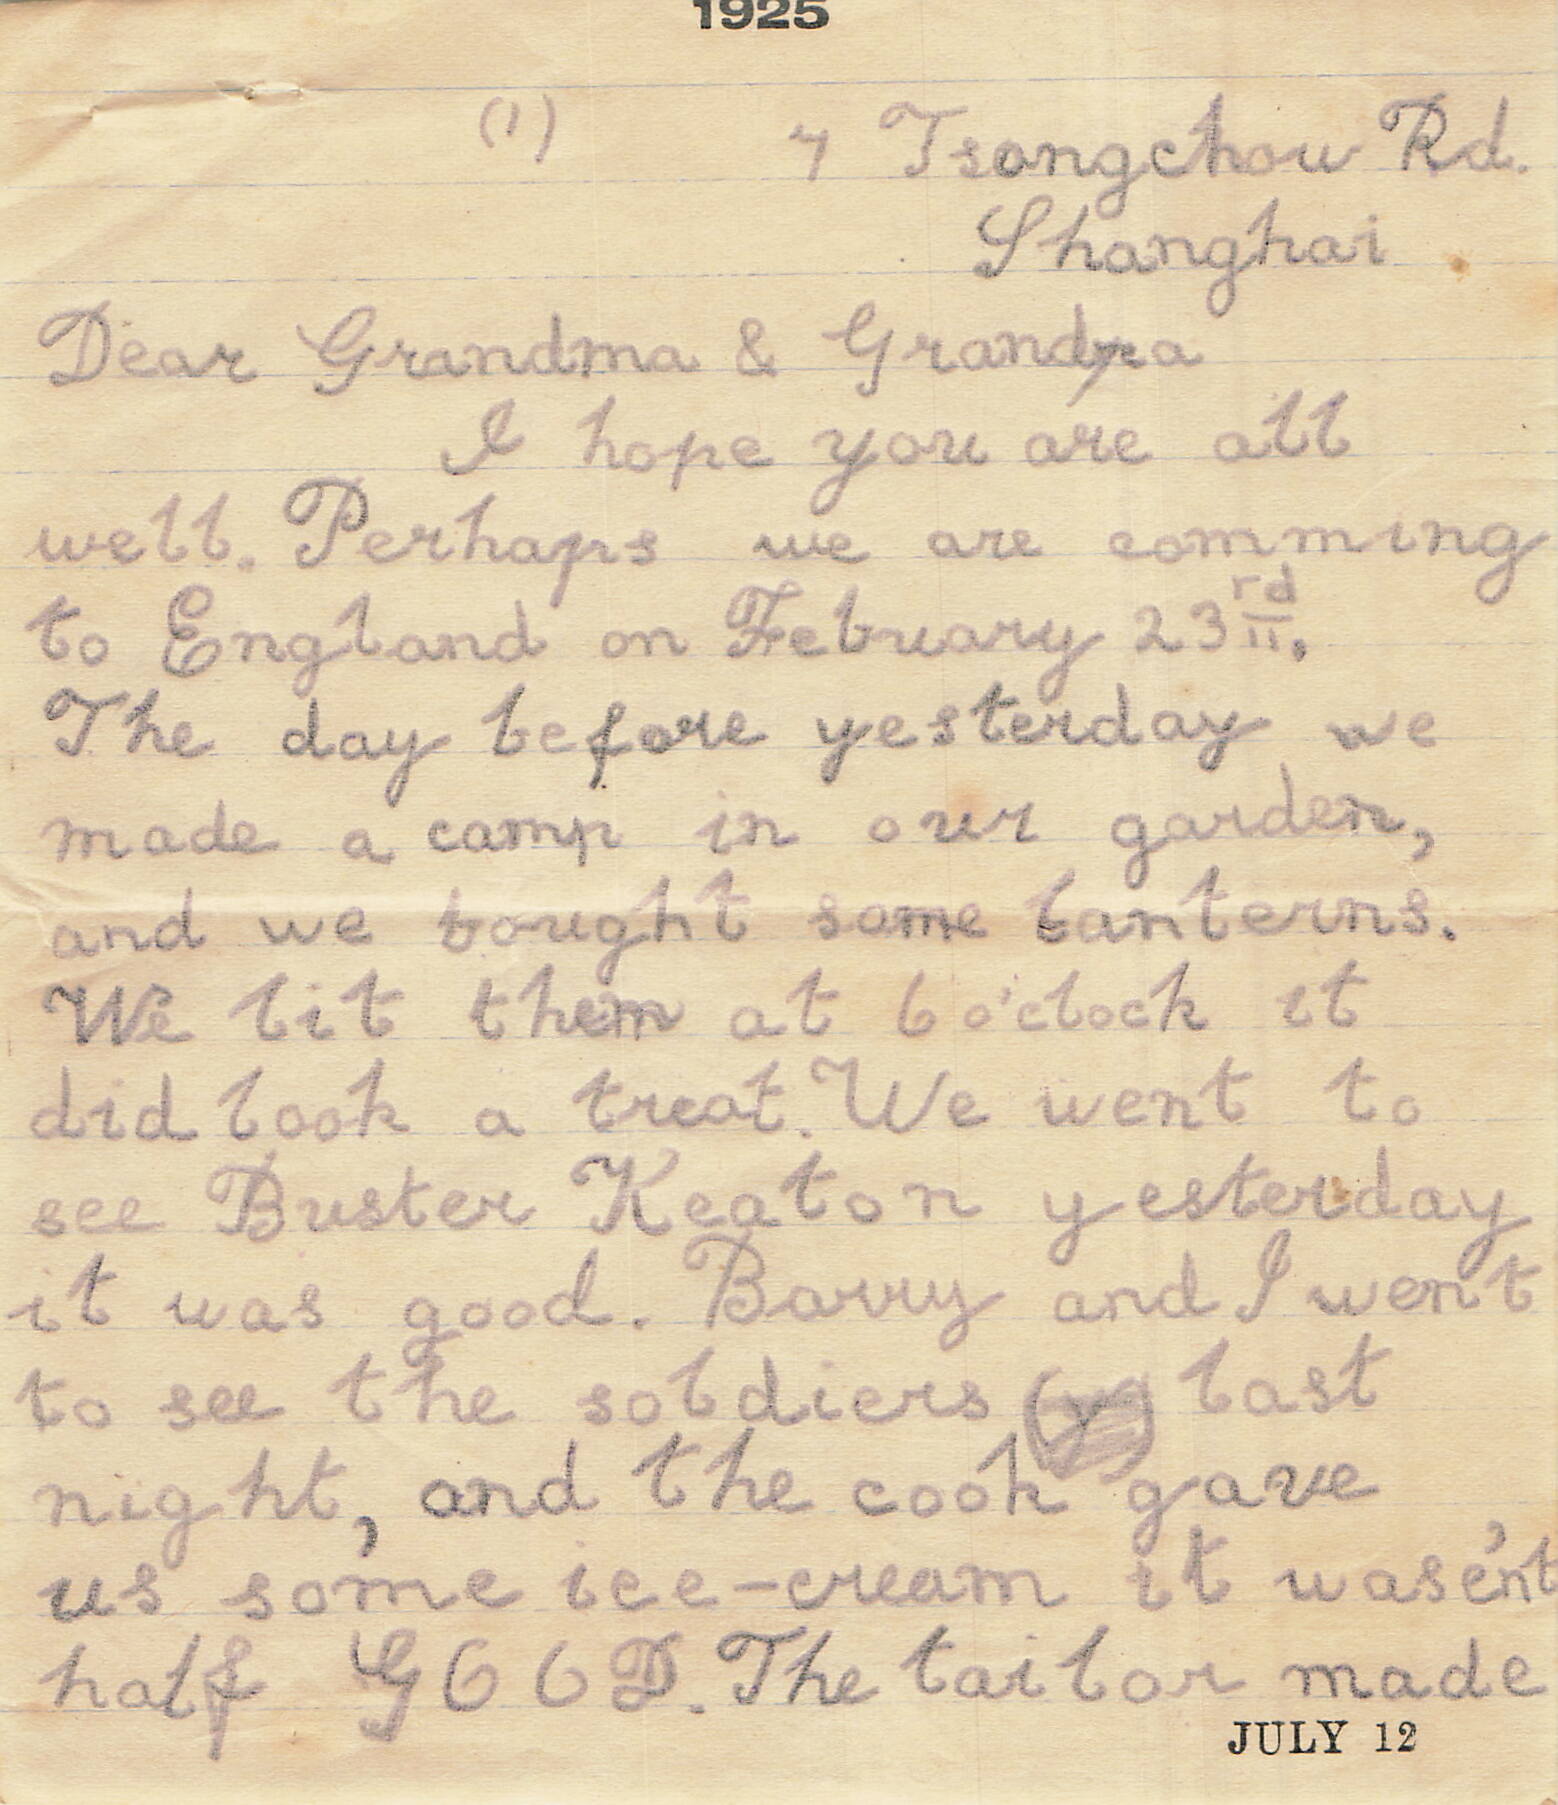 1925
(1) 7 Tsongchow Rd.
Shanghai
Dear Grandma & Grandpa
I hope you are all
well. Perhaps we are comming
to England on February 23rd.
The day before yesterday we
made a camp in our garden,
and we bought some lanterns.
We lit them at 6 o'clock it
did look a treat. We went to
see Buster Keaton yesterday
it was good. Barry and I went
to see the soldiers last
night, and the cook gave
us some ice-cream it wase'nt
half GOOD. The tailor made
JULY 12